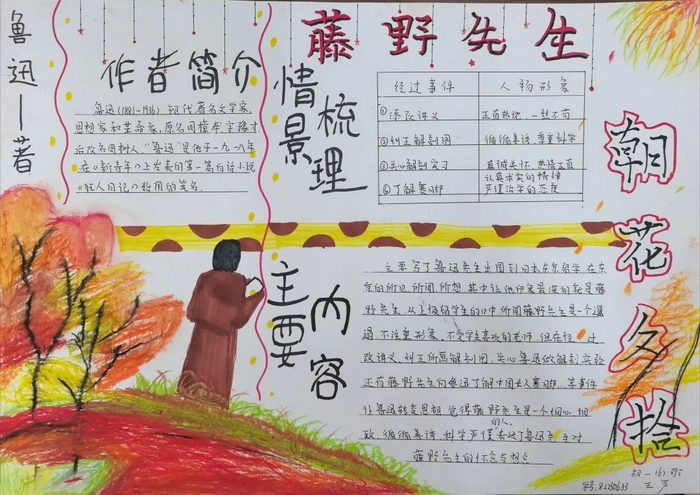 鲁迅一著
藤野先生
作者简介
鲁迅(1881-1936) 现代著名文学家,
思想家和革命家,原名周樟寿字豫才
后改名周树人,"鲁迅"是他于一九一八年
在《新青年》上发表的第一篇白话小说
《狂人日记》始用的笔名.
情景梳理
经过事件 人物形象
①添改讲义 正直热忱,一丝不苟
②纠正解剖图 循循善诱,尊重科学
③关心解剖实习 真诚关怀,热情正直
认真求实的精神
④了解裹脚 严谨治学的态度
朝花夕拾
主要内容
主要写了鲁迅先生出国到日本东京留学,在东
京的所见所闻所想,其中让他印象最深的就是藤
野先生,从
先生是一个
不注重形象,不受学生喜欢的老师,但在他
改讲义,纠正所画解剖图,关心鲁迅做解剖实验
还有藤野先生向鲁迅了解中国女人裹脚,等事件
让鲁迅转变思想,觉得藤野先生是一个细心,细
的人.
致,循循善诱,科学严谨
鲁迅先生对
藤野先生的怀念与想念
初一(6)班
学号:8230633